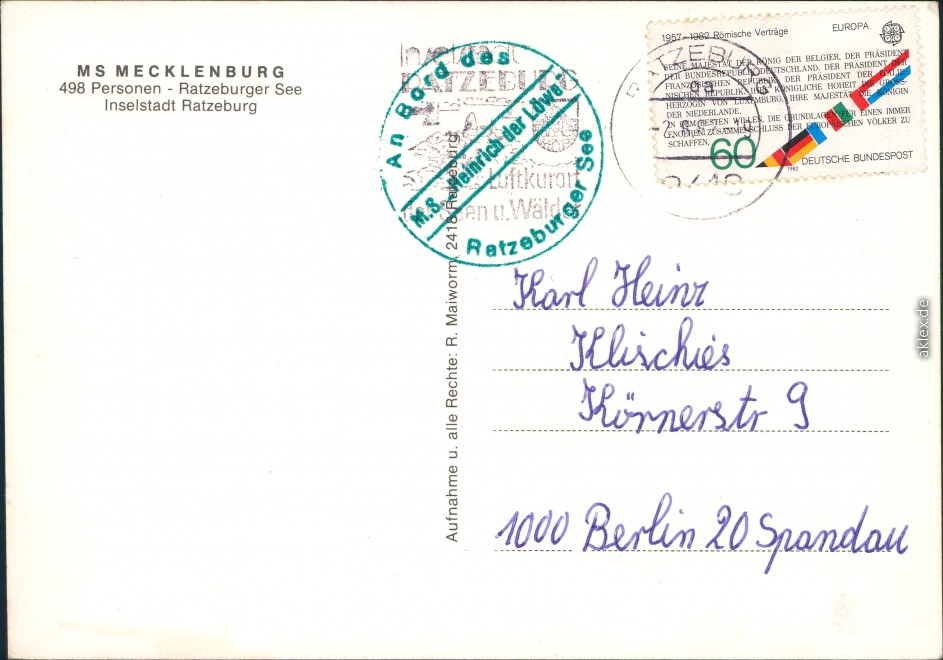 MS MECKLENBURG
498 Personen - Ratzeburger See
Inselstadt Ratzeburg
Inselstadt
RATZEBURG
Luftkurort
der Seen u. Wälder
An Bord des
M.S. „Heinrich der Löwe"
Ratzeburger See
RATZEBURG
2418
1957–1982 Römische Verträge
EUROPA
SEINE MAJESTÄT DER KÖNIG DER BELGIER, DER PRÄSIDENT
DER BUNDESREPUBLIK DEUTSCHLAND, DER PRÄSIDENT DER
FRANZÖSISCHEN REPUBLIK, DER PRÄSIDENT DER ITALIE-
NISCHEN REPUBLIK, IHRE KÖNIGLICHE HOHEIT DIE GROSS-
HERZOGIN VON LUXEMBURG, IHRE MAJESTÄT DIE KÖNIGIN
DER NIEDERLANDE,
IN DEM FESTEN WILLEN, DIE GRUNDLAGEN FÜR EINEN IMMER
ENGEREN ZUSAMMENSCHLUSS DER EUROPÄISCHEN VÖLKER ZU
SCHAFFEN,
60
DEUTSCHE BUNDESPOST
1982
Aufnahme u. alle Rechte: R. Maiworm, 2418 Ratzeburg
Karl Heinz
Klischies
Körnerstr 9
1000 Berlin 20 Spandau
aklex.de